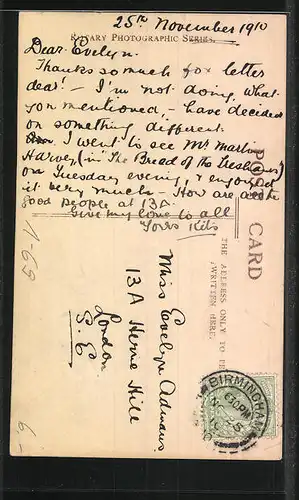 25th November 1910
ROTARY PHOTOGRAPHIC SERIES.
Dear Evelyn.
Thanks so much for letter
dear! - I'm not doing, what
you mentioned, - have decided
on something different.
I went to see Mr Martin
Harvey, (in "The Breed of the Treshams")
on Tuesday evening, & enjoyed
it very much - How are all the
good people at 13A.
Give my love to all
Yours Kits
POST CARD
THE ADDRESS ONLY TO BE
WRITTEN HERE.
Miss Evelyn Adams
13A Herne Hill
London
S.E
BIRMINGHAM
1-69
6-